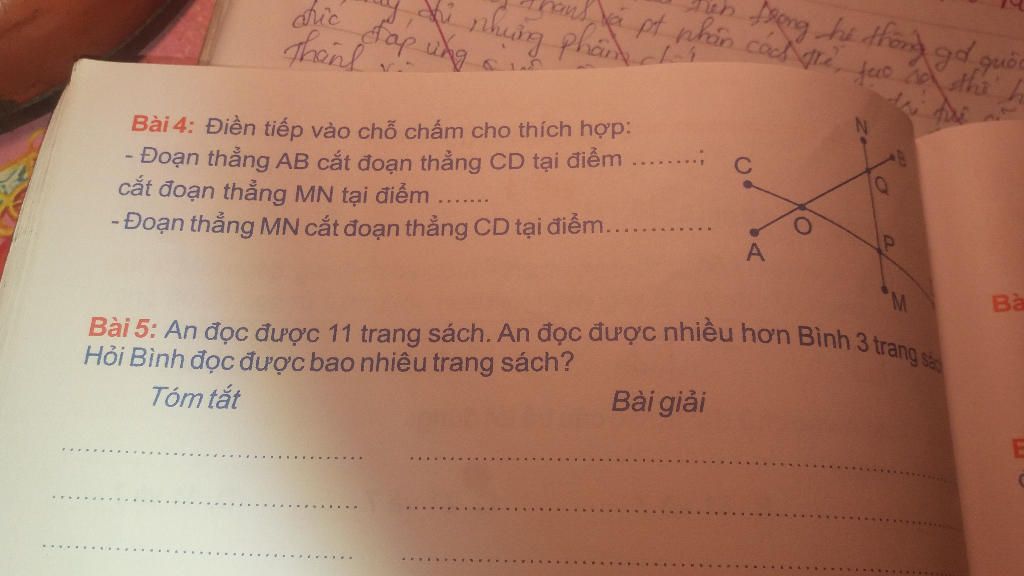 những phần
pt nhân cách trẻ,
trong hệ thống gd quốc
đáp ứng
Bài 4: Điền tiếp vào chỗ chấm cho thích hợp:
- Đoạn thẳng AB cắt đoạn thẳng CD tại điểm .........;
cắt đoạn thẳng MN tại điểm .......
- Đoạn thẳng MN cắt đoạn thẳng CD tại điểm............
N
B
C
Q
O
P
A
M
Bài 5: An đọc được 11 trang sách. An đọc được nhiều hơn Bình 3 trang sách
Hỏi Bình đọc được bao nhiêu trang sách?
Tóm tắt
Bài giải
Bà